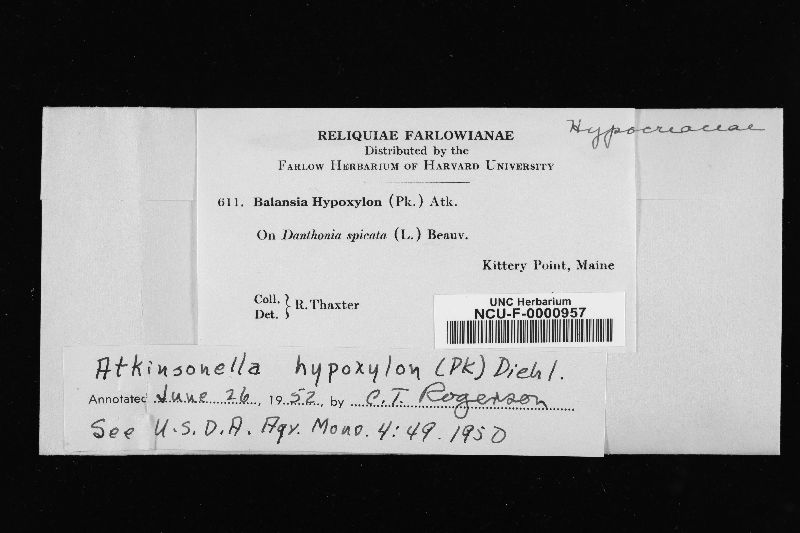 RELIQUIAE FARLOWIANAE
Distributed by the
FARLOW HERBARIUM OF HARVARD UNIVERSITY
Hypocreaceae
611. Balansia Hypoxylon (Pk.) Atk.
On Danthonia spicata (L.) Beauv.
Kittery Point, Maine
Coll. } R. Thaxter
Det.
UNC Herbarium
NCU-F-0000957
Atkinsonella hypoxylon (PK) Diehl.
Annotated June 26, 1952, by C.T. Rogerson
See U.S.D.A. Agr. Mono. 4:49. 1950